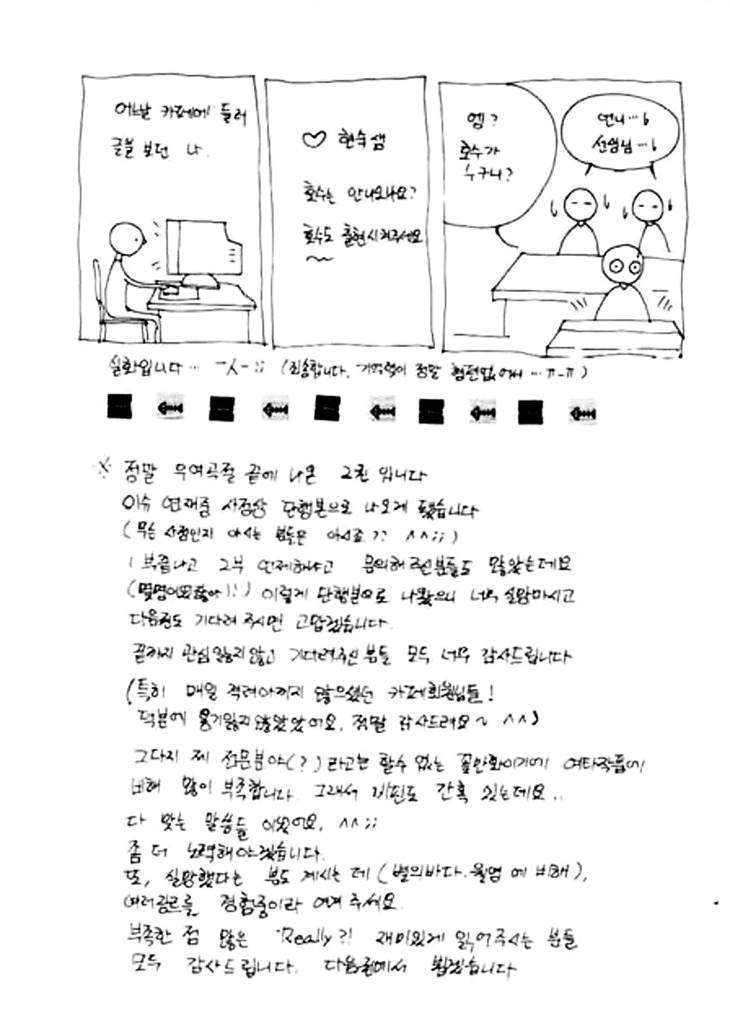 어느날 카페에 들러
글을 보던 나.
♡ 현숙샘
호수는 안나오나요?
호수도 출현시켜주세요
~~
엥?
호수가
누구니?
언니…!
선생님…!
실화입니다… ㅡㅅㅡ;; (죄송합니다. 기억력이 정말 형편없어서…ㅠ-ㅠ)
※ 정말 우여곡절 끝에 나온 2권 입니다
이슈 연재중 사정상 단행본으로 나오게 됐습니다
(무슨 사정인지 아시는 분들은 아시죠?? ^^;;)
1부끝나고 2부 언제하냐고 문의해주신분들도 많았는데요
이렇게 단행본으로 나왔으니 너무 실망마시고
다음권도 기다려 주시면 고맙겠습니다.
끝까지 관심잃지않고 기다려주신 분들 모두 너무 감사드립니다
(특히 매일 격려아끼지 않으셨던 카페회원님들!
덕분에 용기잃지않았었어요. 정말 감사드려요~ ^^)
그다지 제 전문분야(?)라고는 할수 없는 꽃만화이기에 여타작품에
비해 많이 부족합니다. 그래서 비판도 간혹 있는데요..
다 맞는 말씀들 이었어요. ^^;;
좀 더 노력해야겠습니다.
또, 실망했다는 분도 계시는 데 (별의바다.월영 에 비해),
여러장르를 경험중이라 여겨 주세요.
부족한 점 많은 "Really?! 재미있게 읽어주시는 분들
모두 감사드립니다. 다음권에서 뵙겠습니다